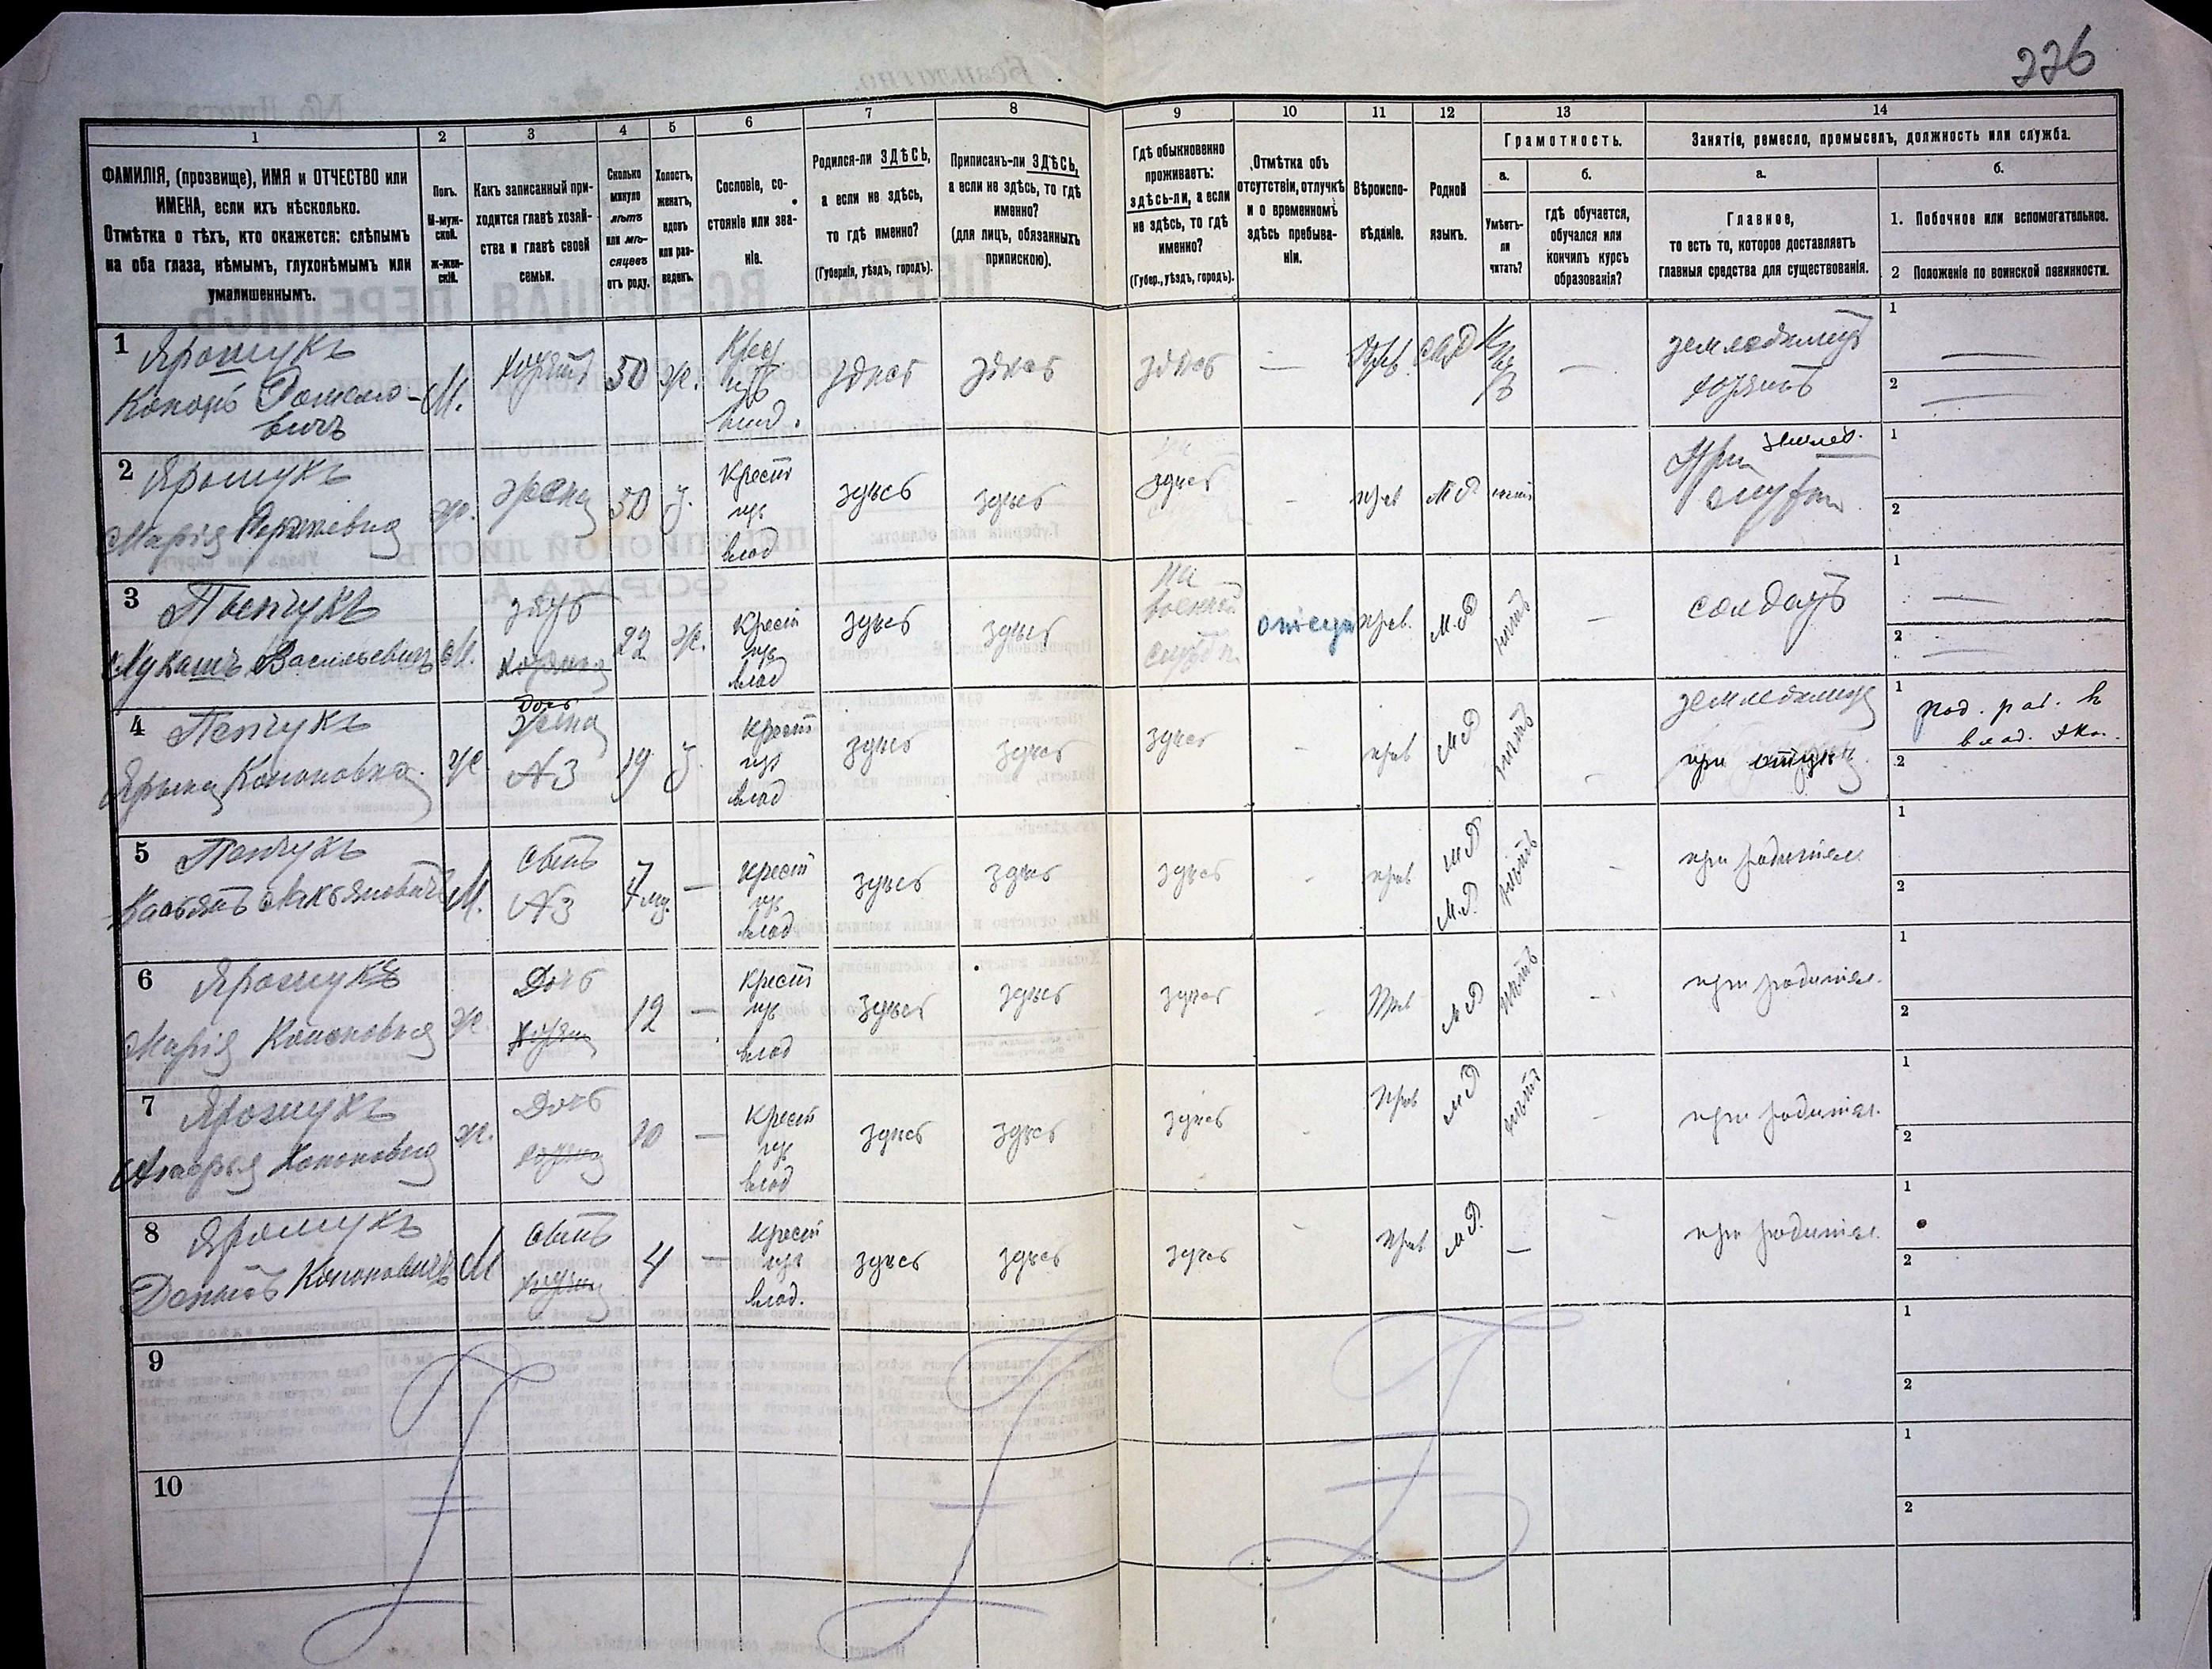 226
1
2
3
4
5
6
7
8
9
10
11
12
13
14
ФАМИЛІЯ, (прозвище), ИМЯ и ОТЧЕСТВО или
ИМЕНА, если ихъ нѣсколько.
Отмѣтка о тѣхъ, кто окажется: слѣпымъ
на оба глаза, нѣмымъ, глухонѣмымъ или
умалишеннымъ.
Полъ.
М-муж-
ской.
Ж-жен-
скій.
Какъ записанный при-
ходится главѣ хозяй-
ства и главѣ своей
семьи.
Сколько
минуло
лѣтъ
или мѣ-
сяцевъ
отъ роду.
Холостъ,
женатъ,
вдовъ
или раз-
веденъ.
Сословіе, со-
стояніе или зва-
ніе.
Родился-ли ЗДѢСЬ,
а если не здѣсь,
то гдѣ именно?
(Губернія, уѣздъ, городъ).
Приписанъ-ли ЗДѢСЬ,
а если не здѣсь, то гдѣ
именно?
(для лицъ, обязанныхъ
припискою).
Гдѣ обыкновенно
проживаетъ:
здѣсь-ли, а если
не здѣсь, то гдѣ
именно?
(Губер., уѣздъ, городъ).
Отмѣтка объ
отсутствіи, отлучкѣ
и о временномъ
здѣсь пребыва-
ніи.
Вѣроиспо-
вѣданіе.
Родной
языкъ.
Грамотность.
а.
Умѣетъ-
ли
читать?
б.
гдѣ обучается,
обучался или
кончилъ курсъ
образованія?
Занятіе, ремесло, промыселъ, должность или служба.
а.
Главное,
то есть то, которое доставляетъ
главныя средства для существованія.
б.
1. Побочное или вспомогательное.
2 Положеніе по воинской повинности.
1
Ярошукъ
Кононъ
М. 50 ж. здѣсь здѣсь здѣсь — Прав. М.Р. —
хозяинъ
1 —
2 —
2
Ярошукъ
Марія
ж. жена 50 з. Крест влад здѣсь здѣсь здѣсь - прав М.Р. нѣтъ
При
1
2
3
Пенчукъ
Лукашъ Васильевичъ
М. зять 22 ж. Крест влад здѣсь здѣсь
на
военной
службѣ
прав. М.Р. нѣтъ — солдатъ
1 —
2 —
4
Пенчукъ
Ярына Кононовна
ж. дочь жена №3 19 з. Крест влад здѣсь здѣсь здѣсь - прав М.Р. нѣтъ -
при отцѣ
1 под. раб. в
влад. эко.
2
5
Пенчукъ
М. сынъ №3 — Крест влад здѣсь здѣсь здѣсь - прав М.Р. М.Р. нѣтъ - при родител.
1
2
6
Ярошукъ
Марія Кононовна
ж. Дочь 12 — Крест влад здѣсь здѣсь здѣсь - Прав М.Р. нѣтъ - при родител.
1
2
7
Ярошукъ
Кононовна
ж. Дочь 10 — Крест влад здѣсь здѣсь здѣсь - Прав М.Р. нѣтъ - при родител.
1
2
8
Ярошукъ
Кононовичъ
М сынъ 4 — Крест влад. здѣсь здѣсь здѣсь - Прав М.Р. — - при родител.
1
2
9
1
2
10
1
2